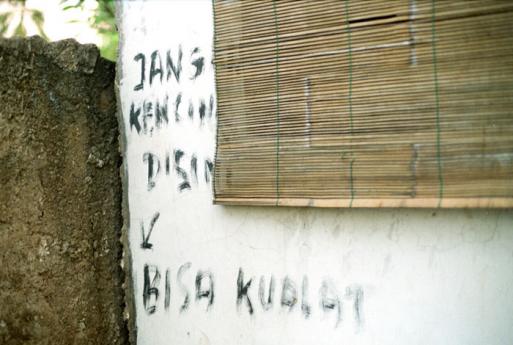 JANG
KENCIN
DISIN
↙
BISA KUALAT